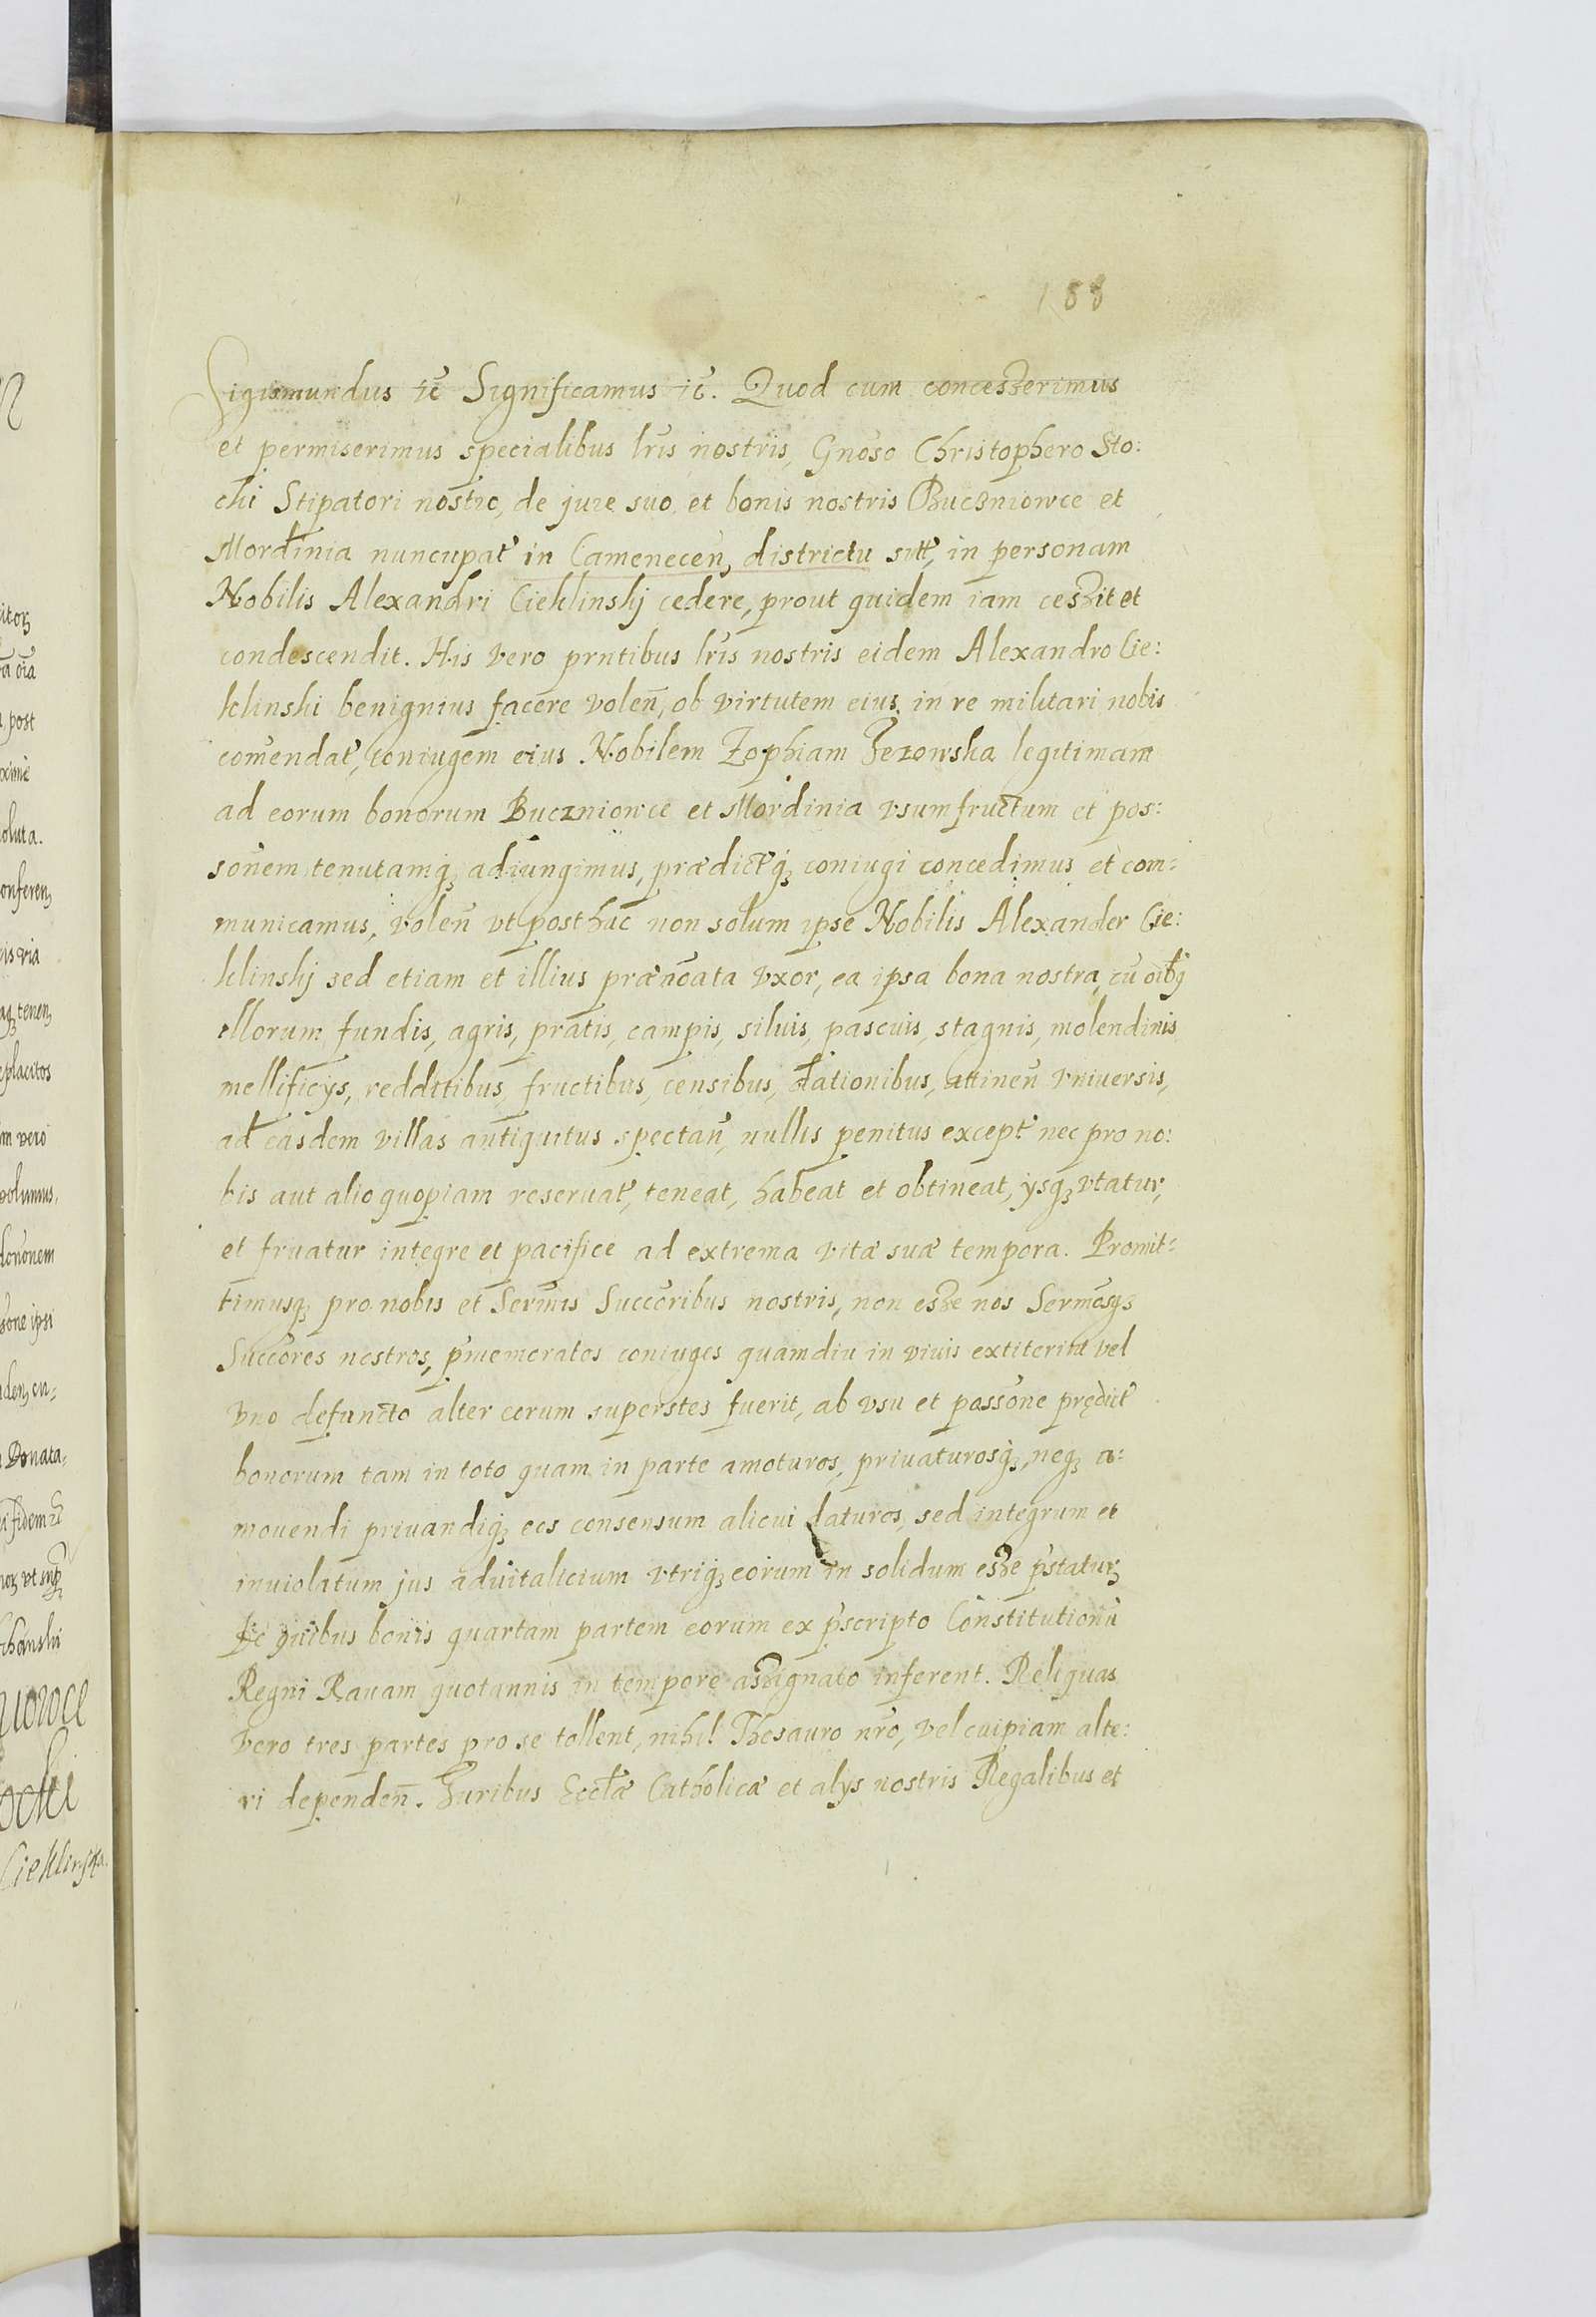 188
Sigismundus etc̃ Significamus etc̃. Quod cum concesserimus
et permiserimus specialibus lr̃is nostris, Gnõso Christophero Sto:
cki Stipatori nostro, de jure suo et bonis nostris Buczniowce et
Mordinia nuncupat̃ in Camenecen̄, districtu sitt̃, in personam
Nobilis Alexandri Cieklinskj cedere, prout quidem iam cessit et
condescendit. His vero prñtibus lr̃is nostris eidem Alexandro Cie:
klinski benignius facere volen̄, ob virtutem eius in re militari nobis
com̃endat̃, coniugem eius Nobilem Zophiam Jezowska legitimam
ad eorum bonorum Buczniowce et Mordinia vsumfructum et pos:
sõnem tenutamq3 adiungimus, prædict̃q3 coniugi concedimus et com:
municamus, volen̄ vt posthac non solum ipse Nobilis Alexander Cie:
klinskj sed etiam et illius prænõata vxor, ea ipsa bona nostra, cũ oib9
illorum fundis, agris, pratis, campis, siluis, pascuis, stagnis, molendinis
mellificijs, redditibus, fructibus, censibus, dationibus, attinen̄ vniuersis,
ad easdem villas antiquitus spectan̄, nullis penitus except̃ nec pro no:
bis aut alio quopiam reseruat̃, teneat, habeat et obtineat, ijsq3 vtatur,
et fruatur integre et pacifice ad extrema vitæ suæ tempora. Promit:
timusq3 pro nobis et Serm̃is Succõribus nostris, non esse nos Serm̃osq3
Succõres nostros, p̃memoratos coniuges quamdiu in viuis extiterint vel
vno defuncto alter eorum superstes fuerit, ab vsu et possõne prędict̃
bonorum tam in toto quam in parte amoturos, priuaturosq3, neq3 a:
mouendi priuandiq3 eos consensum alicui daturos, sed integrum et
inuiolatum jus aduitalicium vtriq3 eorum in solidum esse p̃statur3
De quibus bonis quartam partem eorum ex p̃scripto Constitutionũ
Regni Rauam quotannis in tempore assignato inferent. Reliquas
vero tres partes pro se tollent, nihil Thesauro nr̃o, vel cuipiam alte:
ri dependen̄. Juribus Eccl̃æ Catholicæ et alys nostris Regalibus et